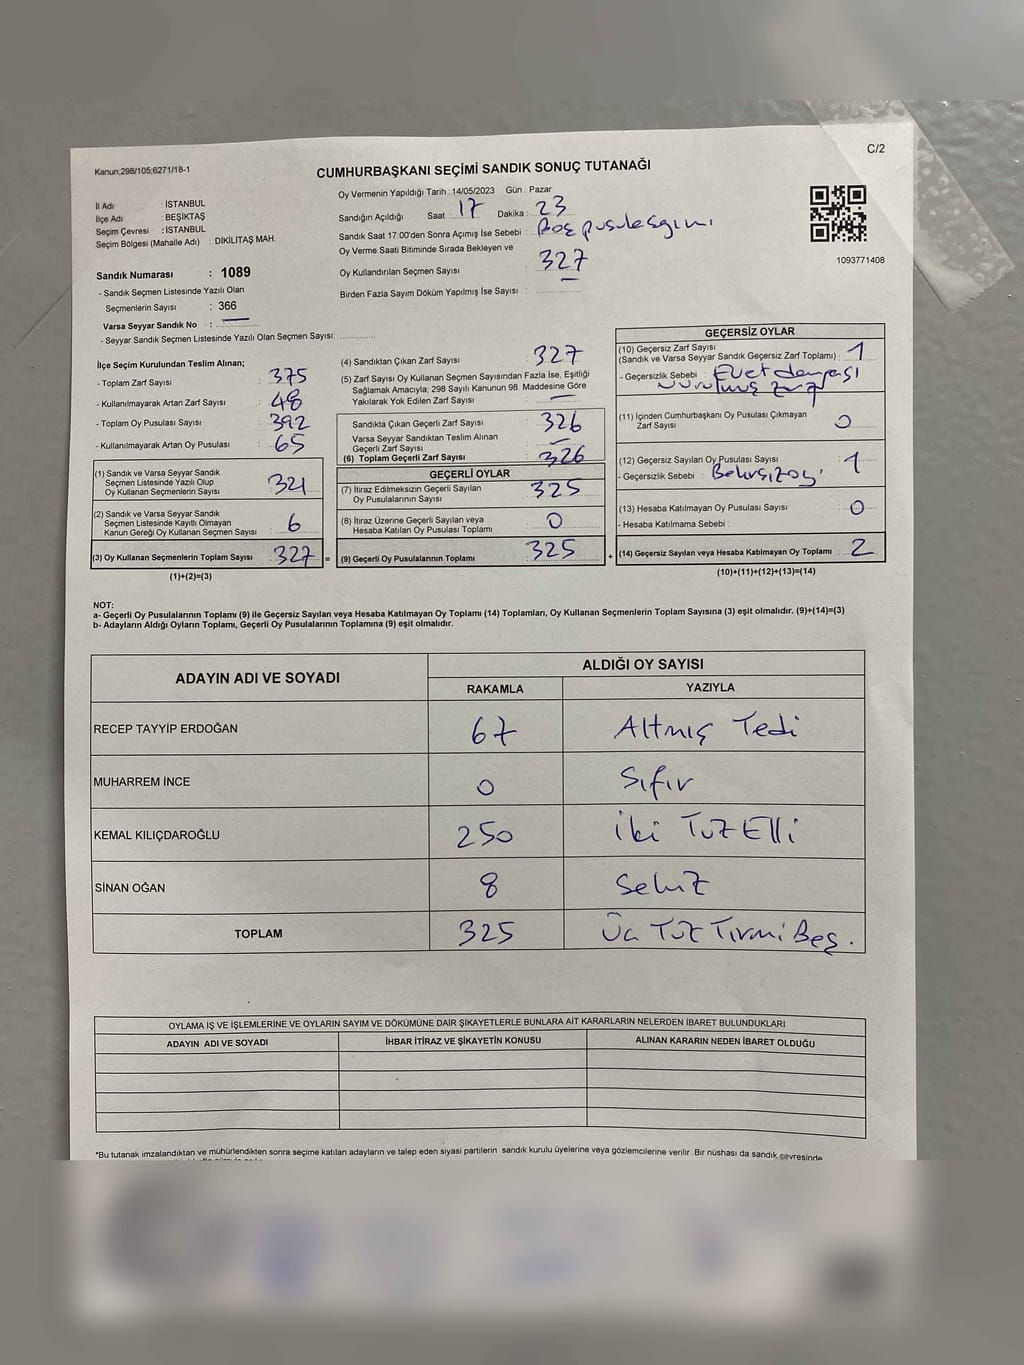 C/2
Kanun:298/105,6271/18-1
CUMHURBAŞKANI SEÇİMİ SANDIK SONUÇ TUTANAĞI
İl Adı : İSTANBUL
İlçe Adı : BEŞİKTAŞ
Seçim Çevresi : İSTANBUL
Seçim Bölgesi (Mahalle Adı) : DİKİLİTAŞ MAH.
Oy Vermenin Yapıldığı Tarih : 14/05/2023 Gün : Pazar
Sandığın Açıldığı Saat : 17 Dakika : 23
Sandık Saat 17:00'den Sonra Açımış İse Sebebi :
Oy Verme Saati Bitiminde Sırada Bekleyen ve
Oy Kullandırılan Seçmen Sayısı : 327
Birden Fazla Sayım Döküm Yapılmış İse Sayısı :
1093771408
Sandık Numarası : 1089
- Sandık Seçmen Listesinde Yazılı Olan
Seçmenlerin Sayısı : 366
Varsa Seyyar Sandık No :
- Seyyar Sandık Seçmen Listesinde Yazılı Olan Seçmen Sayısı:
İlçe Seçim Kurulundan Teslim Alınan;
- Toplam Zarf Sayısı : 375
- Kullanılmayarak Artan Zarf Sayısı : 48
- Toplam Oy Pusulası Sayısı : 392
- Kullanılmayarak Artan Oy Pusulası : 65
(1) Sandık ve Varsa Seyyar Sandık
Seçmen Listesinde Yazılı Olup
Oy Kullanan Seçmenlerin Sayısı : 321
(2) Sandık ve Varsa Seyyar Sandık
Seçmen Listesinde Kayıtlı Olmayan
Kanun Gereği Oy Kullanan Seçmen Sayısı : 6
(3) Oy Kullanan Seçmenlerin Toplam Sayısı : 327 =
(1)+(2)=(3)
(4) Sandıktan Çıkan Zarf Sayısı : 327
(5) Zarf Sayısı Oy Kullanan Seçmen Sayısından Fazla İse, Eşitliği
Sağlamak Amacıyla; 298 Sayılı Kanunun 98. Maddesine Göre
Yakılarak Yok Edilen Zarf Sayısı : —
Sandıkta Çıkan Geçerli Zarf Sayısı : 326
Varsa Seyyar Sandıktan Teslim Alınan
Geçerli Zarf Sayısı : —
(6) Toplam Geçerli Zarf Sayısı : 326
GEÇERLİ OYLAR
(7) İtiraz Edilmeksizin Geçerli Sayılan
Oy Pusulalarının Sayısı : 325
(8) İtiraz Üzerine Geçerli Sayılan veya
Hesaba Katılan Oy Pusulası Toplamı : 0
(9) Geçerli Oy Pusulalarının Toplamı : 325 +
GEÇERSİZ OYLAR
(10) Geçersiz Zarf Sayısı
(Sandık ve Varsa Seyyar Sandık Geçersiz Zarf Toplamı) : 1
- Geçersizlik Sebebi : Evet damgası
vurulmuş zarf
(11) İçinden Cumhurbaşkanı Oy Pusulası Çıkmayan
Zarf Sayısı : 0
(12) Geçersiz Sayılan Oy Pusulası Sayısı : 1
- Geçersizlik Sebebi : Belirsiz oy
(13) Hesaba Katılmayan Oy Pusulası Sayısı : 0
- Hesaba Katılmama Sebebi :
(14) Geçersiz Sayılan veya Hesaba Katılmayan Oy Toplamı : 2
(10)+(11)+(12)+(13)=(14)
NOT:
a- Geçerli Oy Pusulalarının Toplamı (9) ile Geçersiz Sayılan veya Hesaba Katılmayan Oy Toplamı (14) Toplamları, Oy Kullanan Seçmenlerin Toplam Sayısına (3) eşit olmalıdır. (9)+(14)=(3)
b- Adayların Aldığı Oyların Toplamı, Geçerli Oy Pusulalarının Toplamına (9) eşit olmalıdır.
ADAYIN ADI VE SOYADI ALDIĞI OY SAYISI
RAKAMLA YAZIYLA
RECEP TAYYİP ERDOĞAN 67 Altmış Yedi
MUHARREM İNCE 0 Sıfır
KEMAL KILIÇDAROĞLU 250 İki Yüz Elli
SİNAN OĞAN 8 Sekiz
TOPLAM 325 Üç Yüz Yirmi Beş.
OYLAMA İŞ VE İŞLEMLERİNE VE OYLARIN SAYIM VE DÖKÜMÜNE DAİR ŞİKAYETLERLE BUNLARA AİT KARARLARIN NELERDEN İBARET BULUNDUKLARI
ADAYIN ADI VE SOYADI İHBAR İTİRAZ VE ŞİKAYETİN KONUSU ALINAN KARARIN NEDEN İBARET OLDUĞU
*Bu tutanak imzalandıktan ve mühürlendikten sonra seçime katılan adayların ve talep eden siyasi partilerin sandık kurulu üyelerine veya gözlemcilerine verilir. Bir nüshası da sandık çevresinde